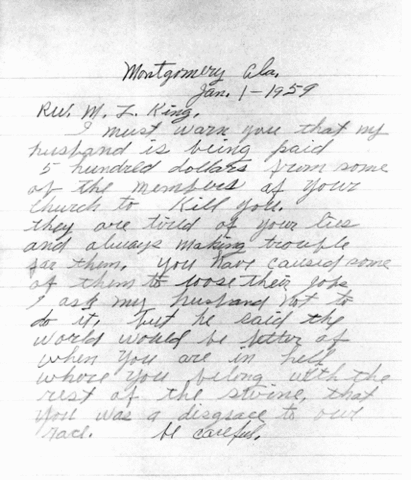 Montgomery Ala.
Jan. 1-1959
Rev. M. L. King.
I must warn you that my
husband is being paid
5 hundred dollars from some
of the members of your
church to kill you.
they are tired of your lies
and always making trouble
for them. you have caused some
of them to loose their jobs
I ask my husband not to
do it, but he said the
world would be better of
when you are in hell
where you belong with the
rest of the swine, that
you was a disgrace to our
race. be careful.